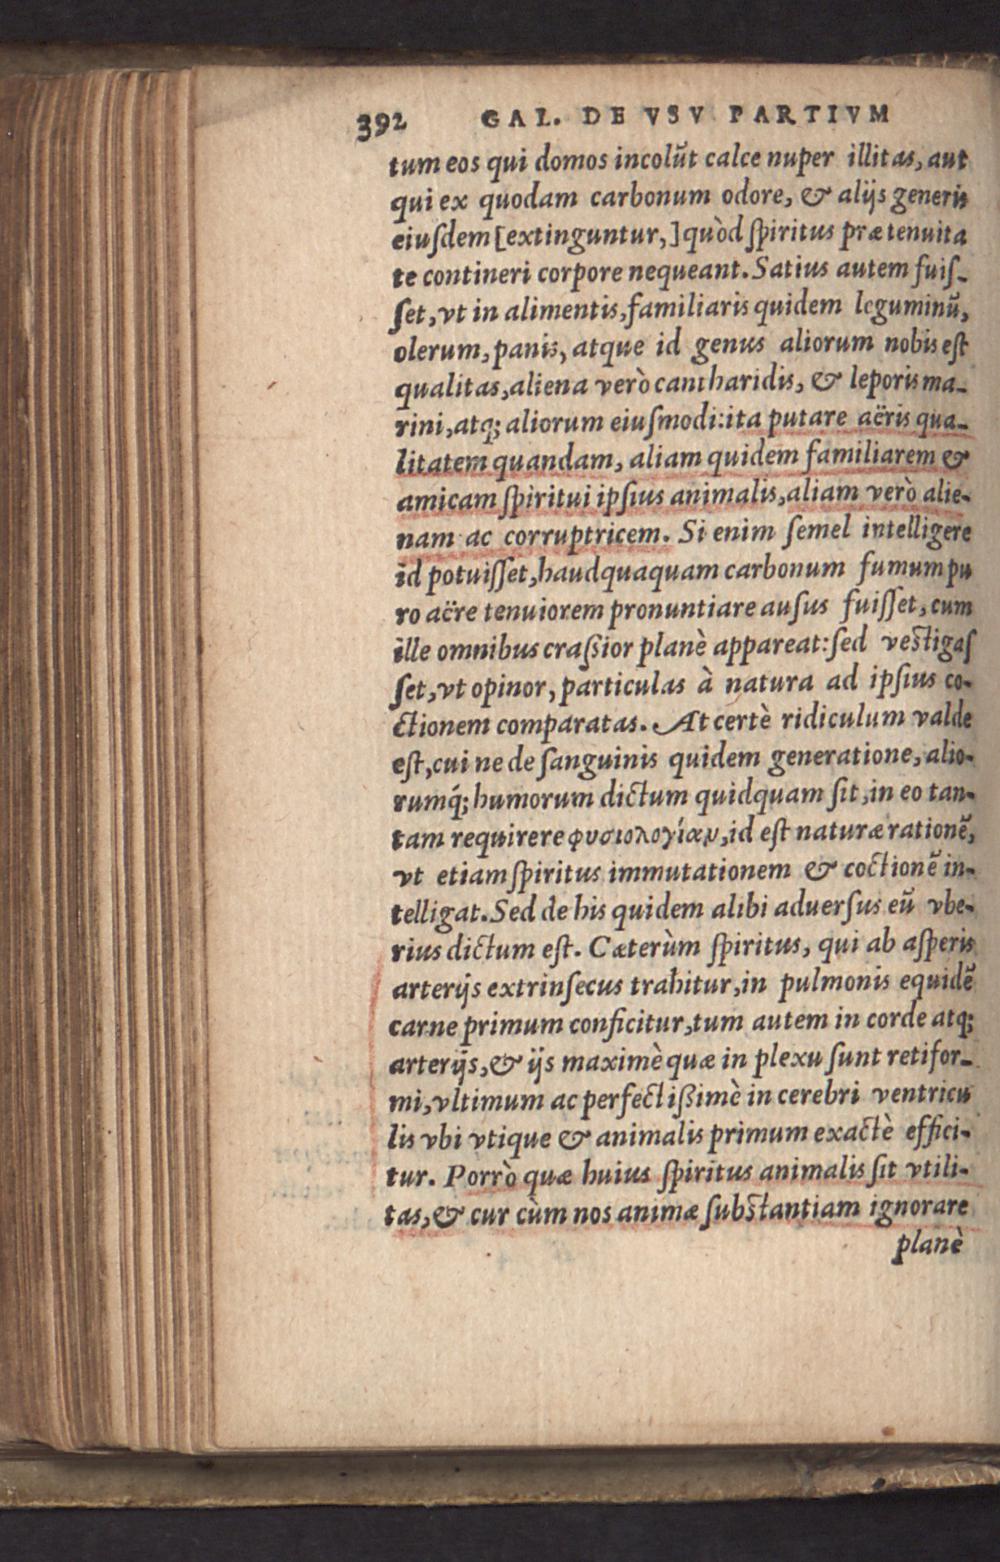 392 GAL. DE VSV PARTIVM
tum eos qui domos incolūt calce nuper illitas, aut
qui ex quodam carbonum odore, & alijs generis
eiuſdem [extinguntur,] quòd ſpiritus præ tenuita
te contineri corpore nequeant. Satius autem fuiſ-
ſet, vt in alimentis, familiaris quidem leguminū,
olerum, panis, atque id genus aliorum nobis eſt
qualitas, aliena verò cantharidis, & leporis ma-
rini, atq; aliorum eiuſmodi: ita putare aëris qua-
litatem quandam, aliam quidem familiarem &
amicam ſpiritui ipſius animalis, aliam verò alie-
nam ac corruptricem. Si enim ſemel intelligere
id potuiſſet, haudquaquam carbonum fumum pu
ro aëre tenuiorem pronuntiare auſus fuiſſet, cum
ille omnibus craſsior planè appareat: ſed veſtigaſ
ſet, vt opinor, particulas à natura ad ipſius co-
ctionem comparatas. At certè ridiculum valde
eſt, cui ne de ſanguinis quidem generatione, alio-
rumq́; humorum dictum quidquam ſit, in eo tan-
tam requirere φυσιολογίαν, id eſt naturæ rationē,
vt etiam ſpiritus immutationem & coctionē in-
telligat. Sed de his quidem alibi aduerſus eū vbe-
rius dictum eſt. Cæterùm ſpiritus, qui ab aſperis
arterijs extrinſecus trahitur, in pulmonis equidē
carne primum conficitur, tum autem in corde atq;
arterijs, & ijs maximè quæ in plexu ſunt retifor-
mi, vltimum ac perfectiſsimè in cerebri ventricu
lis vbi vtique & animalis primum exactè effici-
tur. Porrò quæ huius ſpiritus animalis ſit vtili-
tas, & cur cùm nos animæ ſubſtantiam ignorare
planè